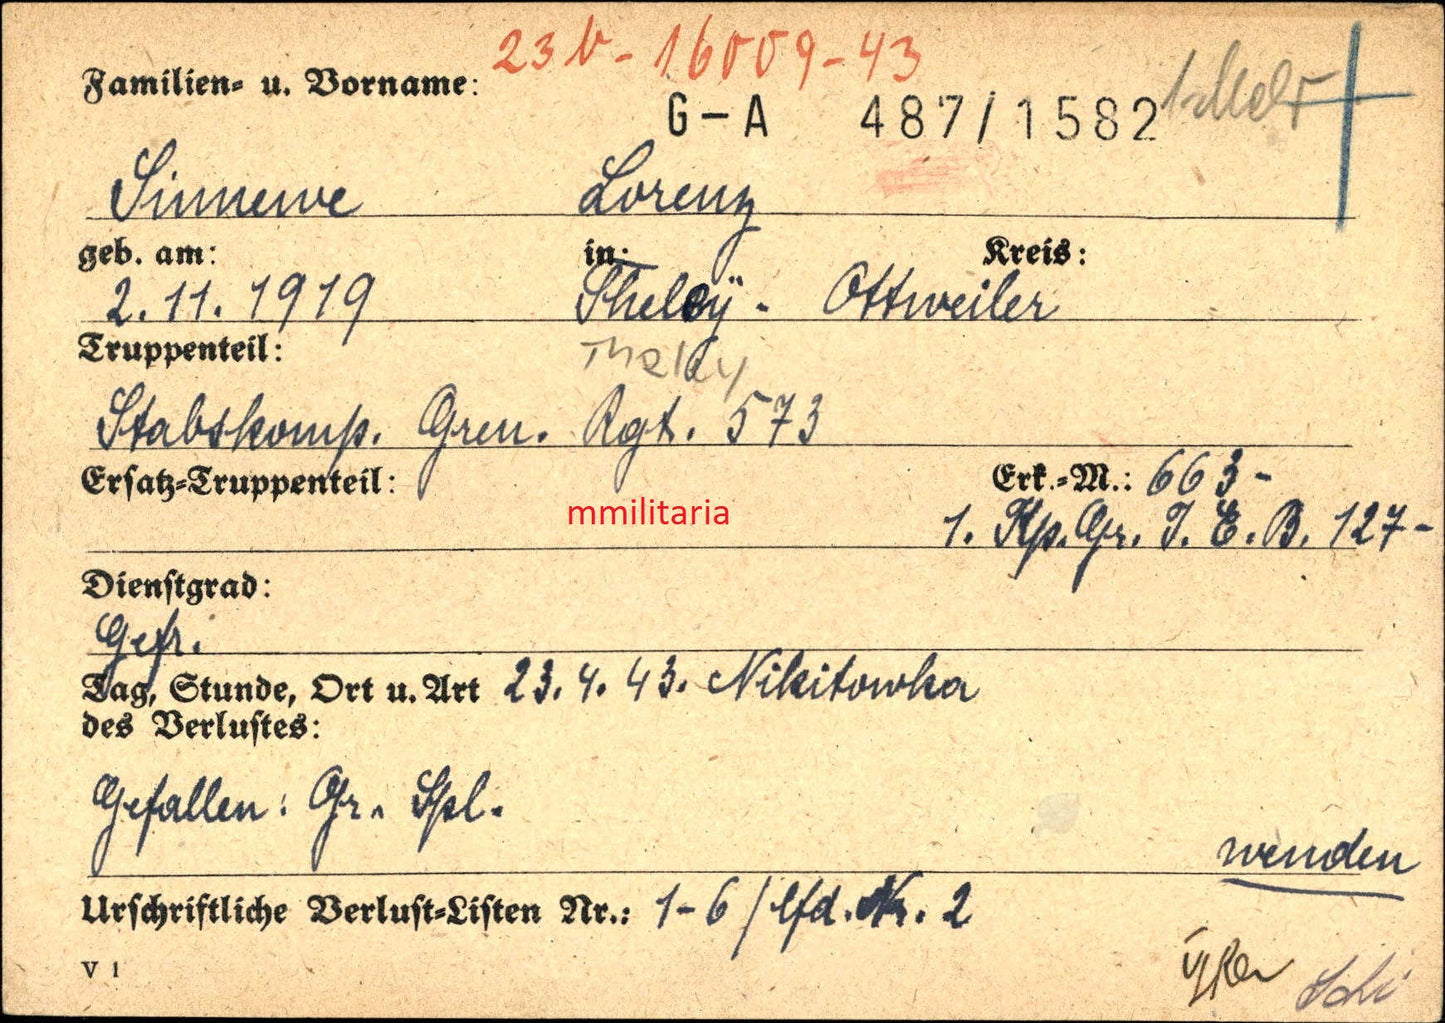 23b-16009-43
Familien- u. Vorname:
G-A 487/1582
Sinnewe Lorenz
geb. am: in: Kreis:
2.11.1919 Theley - Ottweiler
Truppenteil: Theley
Stabskomp. Gren. Rgt. 573
Ersatz-Truppenteil: Erk.-M.: 663-
mmilitaria
1. Kp. Gr. I. E. B. 127-
Dienstgrad:
Gefr.
Tag, Stunde, Ort u. Art 23. 4. 43. Nikitowka
des Verlustes:
Gefallen: Gr. Spl.
wenden
Urschriftliche Verlust-Listen Nr.: 1-6 / lfd. Nr. 2
V 1